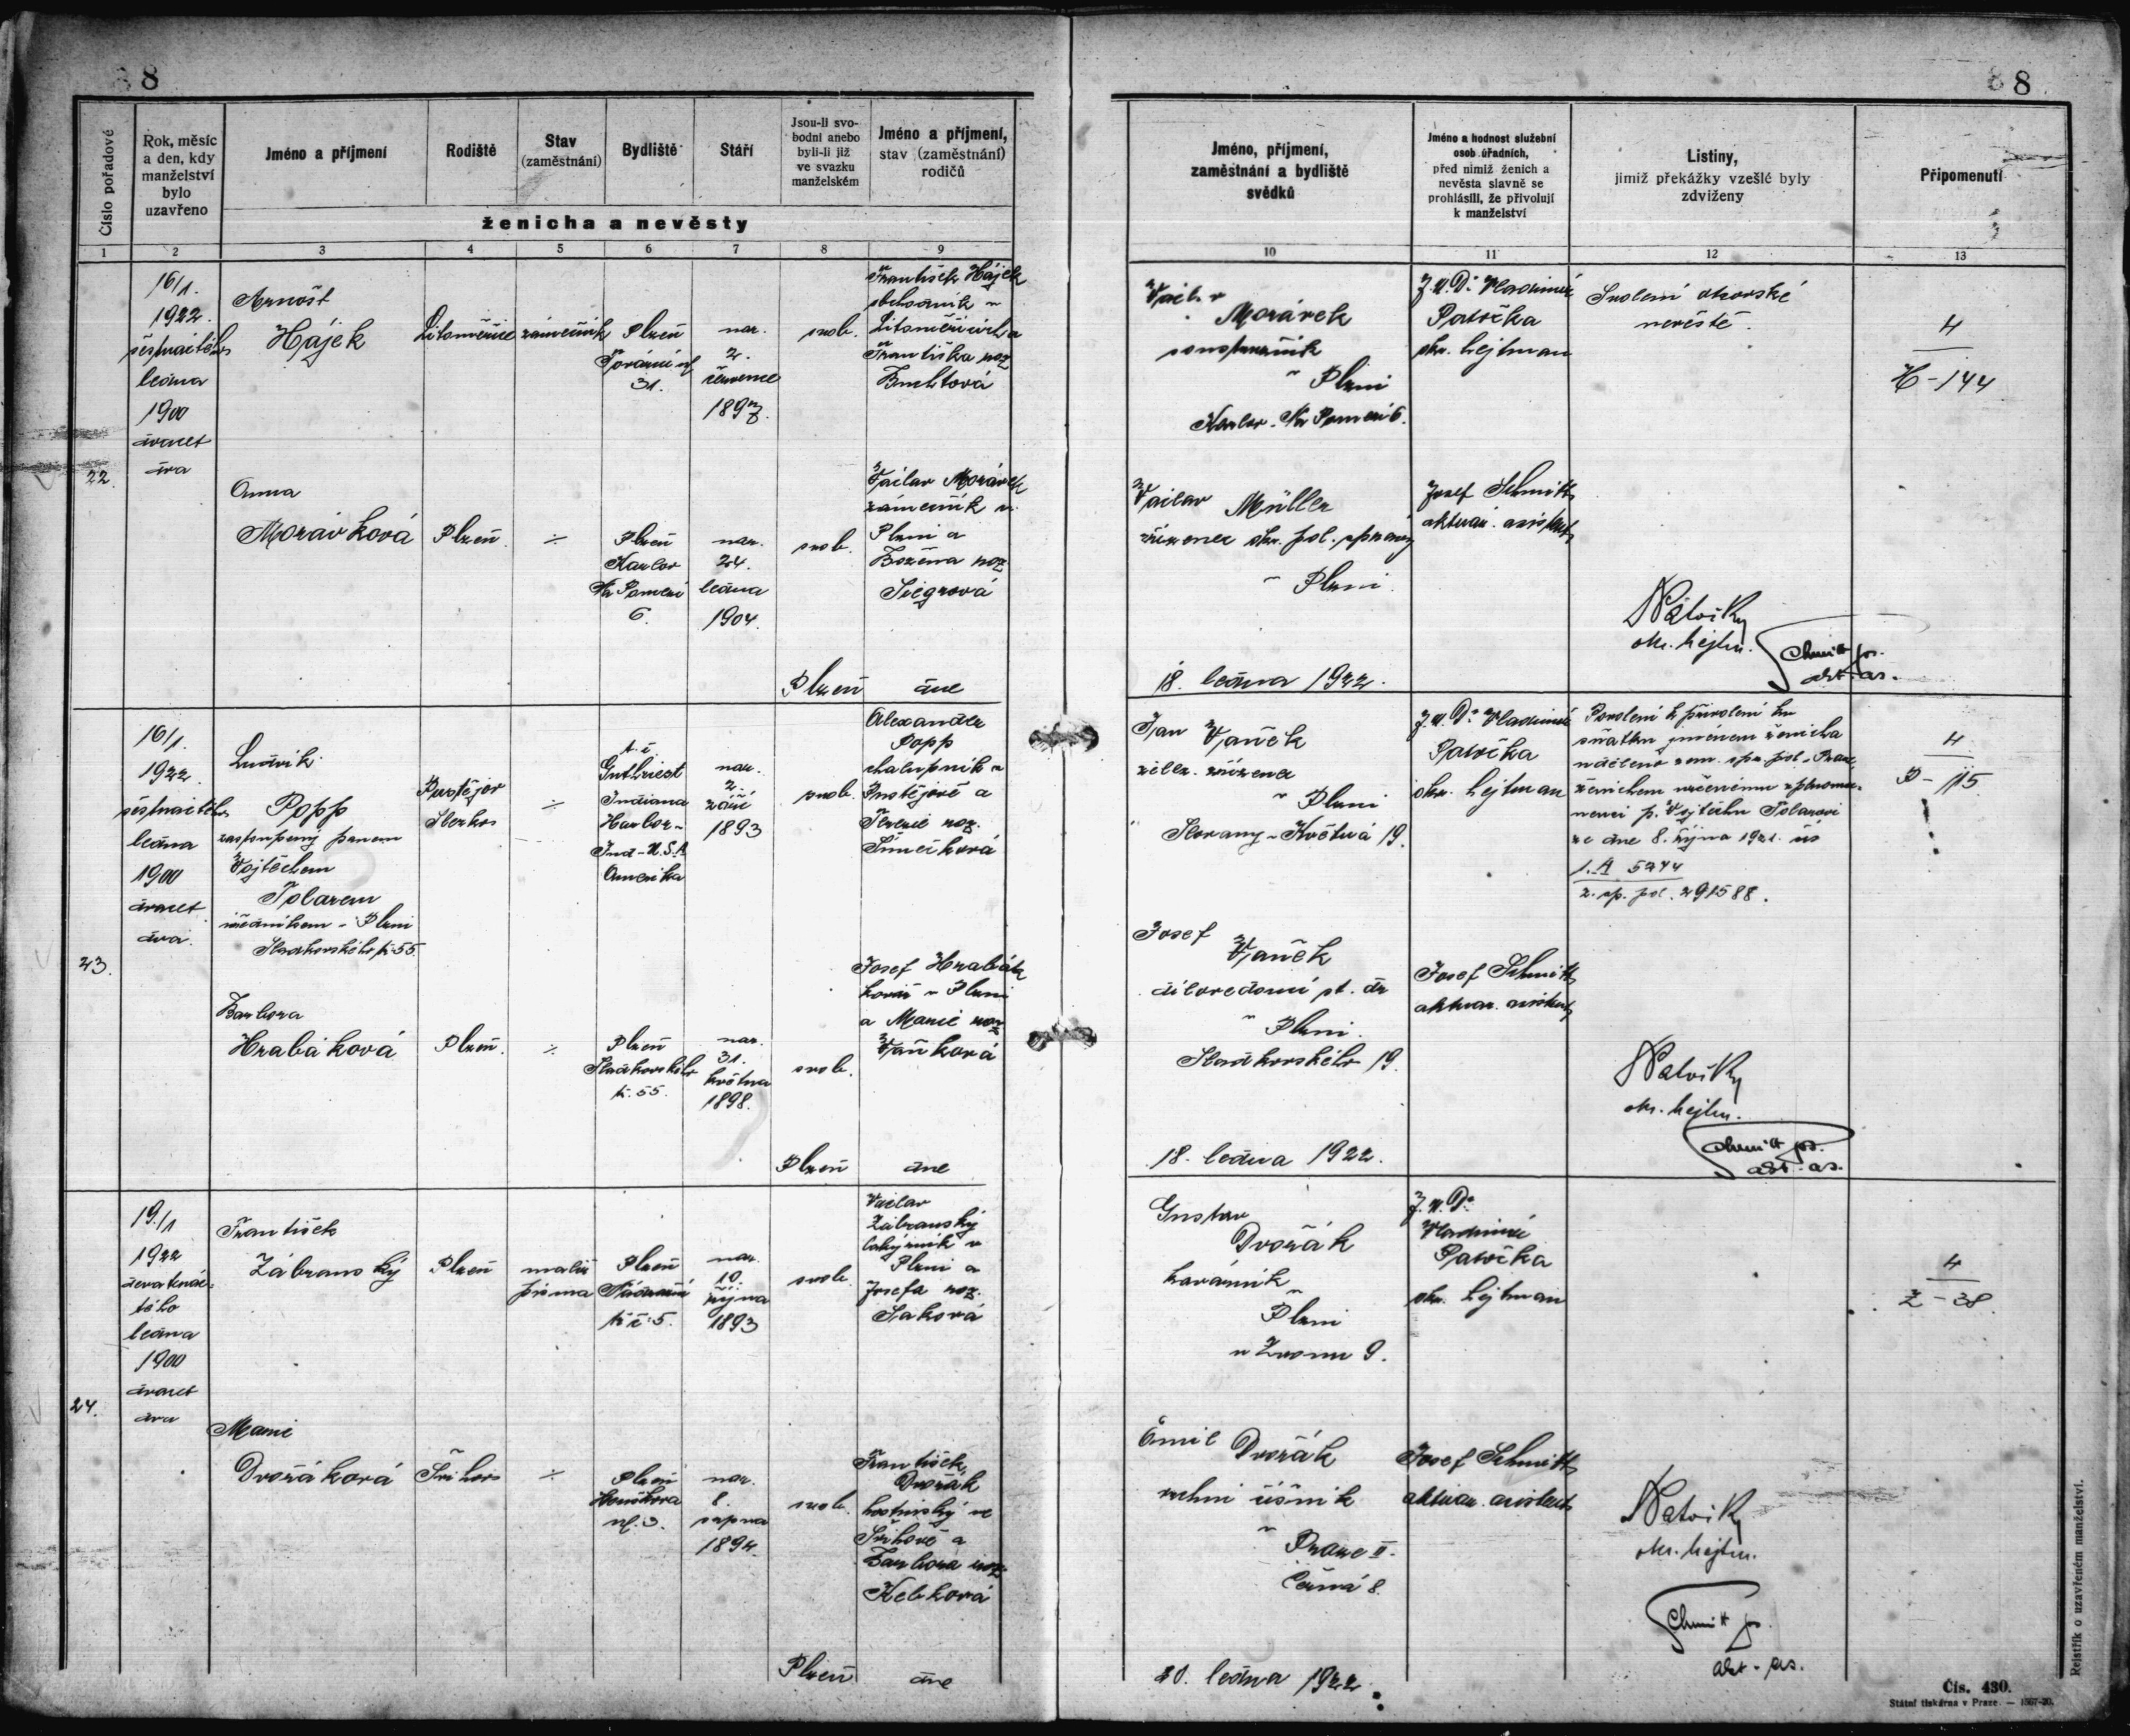 8
8
Číslo pořadové
Rok, měsíc
a den, kdy
manželství
bylo
uzavřeno
Jméno a příjmení
Rodiště
Stav
(zaměstnání)
Bydliště
Stáří
Jsou-li svo-
bodni anebo
byli-li již
ve svazku
manželském
Jméno a příjmení,
stav (zaměstnání)
rodičů
ženicha a nevěsty
Jméno, příjmení,
zaměstnání a bydliště
svědků
Jméno a hodnost služební
osob úřadních,
před nimiž ženich a
nevěsta slavně se
prohlásili, že přivolují
k manželství
Listiny,
jimiž překážky vzešlé byly
zdviženy
Připomenutí
1
2
3
4
5
6
7
8
9
10
11
12
13
22.
16/1.
1922.
šestnáctého
ledna
1900
dvacet
dva
Arnošt
Hájek
Litoměřice
zámečník
Plzeň
31.
nar.
2.
července
1897.
svob.
František Hájek
obchodník v
Litoměřicích a
Františka roz.
Buchtová
Morávek
v Plzni
Karlov. Na Pomezí 6.
J.U.Dr Vladimír
Patočka
okr. hejtman
Svolení otcovské
nevěstě.
4
H-144
Anna
Morávková
Plzeň
÷
Plzeň
Karlov
Na Pomezí
6.
nar.
24.
ledna
1904.
svob.
Václav Morávek
zámečník v
Plzni a
Božena roz.
Václav Müller
zřízenec okr. pol. správy
v Plzni.
Josef Schmitt
aktuar. asistent
okr. hejtm.
Schmitt
akt. as.
Plzeň dne
18. ledna 1922.
23.
16/1.
1922
šestnáctého
ledna
1900
dvacet
dva.
Ludvík
Popp
zastoupený panem
Vojtěchem
Tolarem
úředníkem v Plzni
Sladkovského tř. 55.
Pustějov
÷
Indiana
Harbor-
Ind-U.S.A
Amerika
nar.
2.
září
1893
svob.
Alexander
Popp
chalupník v
Pustějově a
Terezie roz.
Šimečková
Jan Vaněk
v Plzni
Skvrňany-Květná 19.
J.U.Dr Vladimír
Patočka
okr. hejtman
Povolení k přivolení ku
sňatku jménem ženicha
uděleno zem. spr. pol. v Praze,
ženichem určenému zplnomoc-
nenci p. Vojtěchu Tolarovi
ze dne 8. října 1921. čís
1.A 5274
z. sp. pol. 291588.
4
P-115
Barbora
Hrabáková
Plzeň.
÷
Plzeň
Sladkovského
tř. 55.
nar.
31.
května
1898.
svob.
Josef Hrabák
kovář v Plzni
a Marie roz.
Vaňková
Josef
Vaněk
dílovedoucí st. dr
v Plzni.
Sladkovského 19.
Josef Schmitt
aktuar. asistent
okr. hejtm.
Schmitt
akt. as.
Plzeň dne
18. ledna 1922.
24.
19./1
1922
devatenác-
tého
ledna
1900
dvacet
dva
František
Zábranský
Plzeň
malíř
písma
Plzeň
Nádražní
tř. č. 5.
nar.
10.
října
1893
svob.
Václav
Zábranský
v
Plzni a
Josefa roz.
Gustav
Dvořák
kavárník
v
Plzni
u Zvonu 9.
J.U.Dr
Vladimír
Patočka
okr. hejtman
4
Z-38.
Marie
Dvořáková
÷
Plzeň
ul. 3.
nar.
8.
srpna
1894.
svob.
František
Dvořák
hostinský ve
a
Barbora roz.
Emil Dvořák
vrchní číšník
v
Praze II.
Černá 8.
Josef Schmitt
aktuar. asistent
okr. hejtm.
Schmitt
akt. as.
Plzeň dne
20. ledna 1922.
Rejstřík o uzavřeném manželství.
Čís. 430.
Státní tiskárna v Praze. — 1567-20.